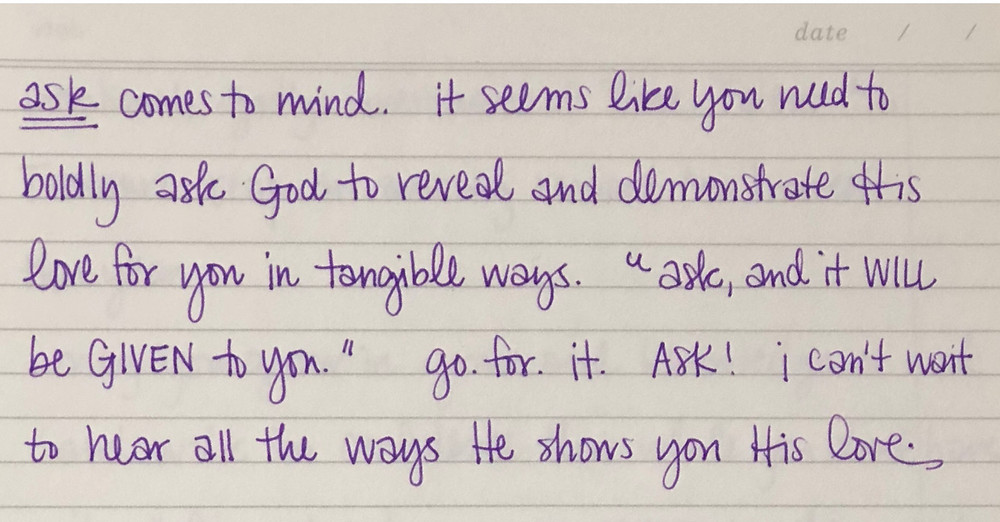 date / /
ask comes to mind. it seems like you need to
boldly ask God to reveal and demonstrate His
love for you in tangible ways. "ask, and it WILL
be GIVEN to you." go. for. it. ASK! i can't wait
to hear all the ways He shows you His love.